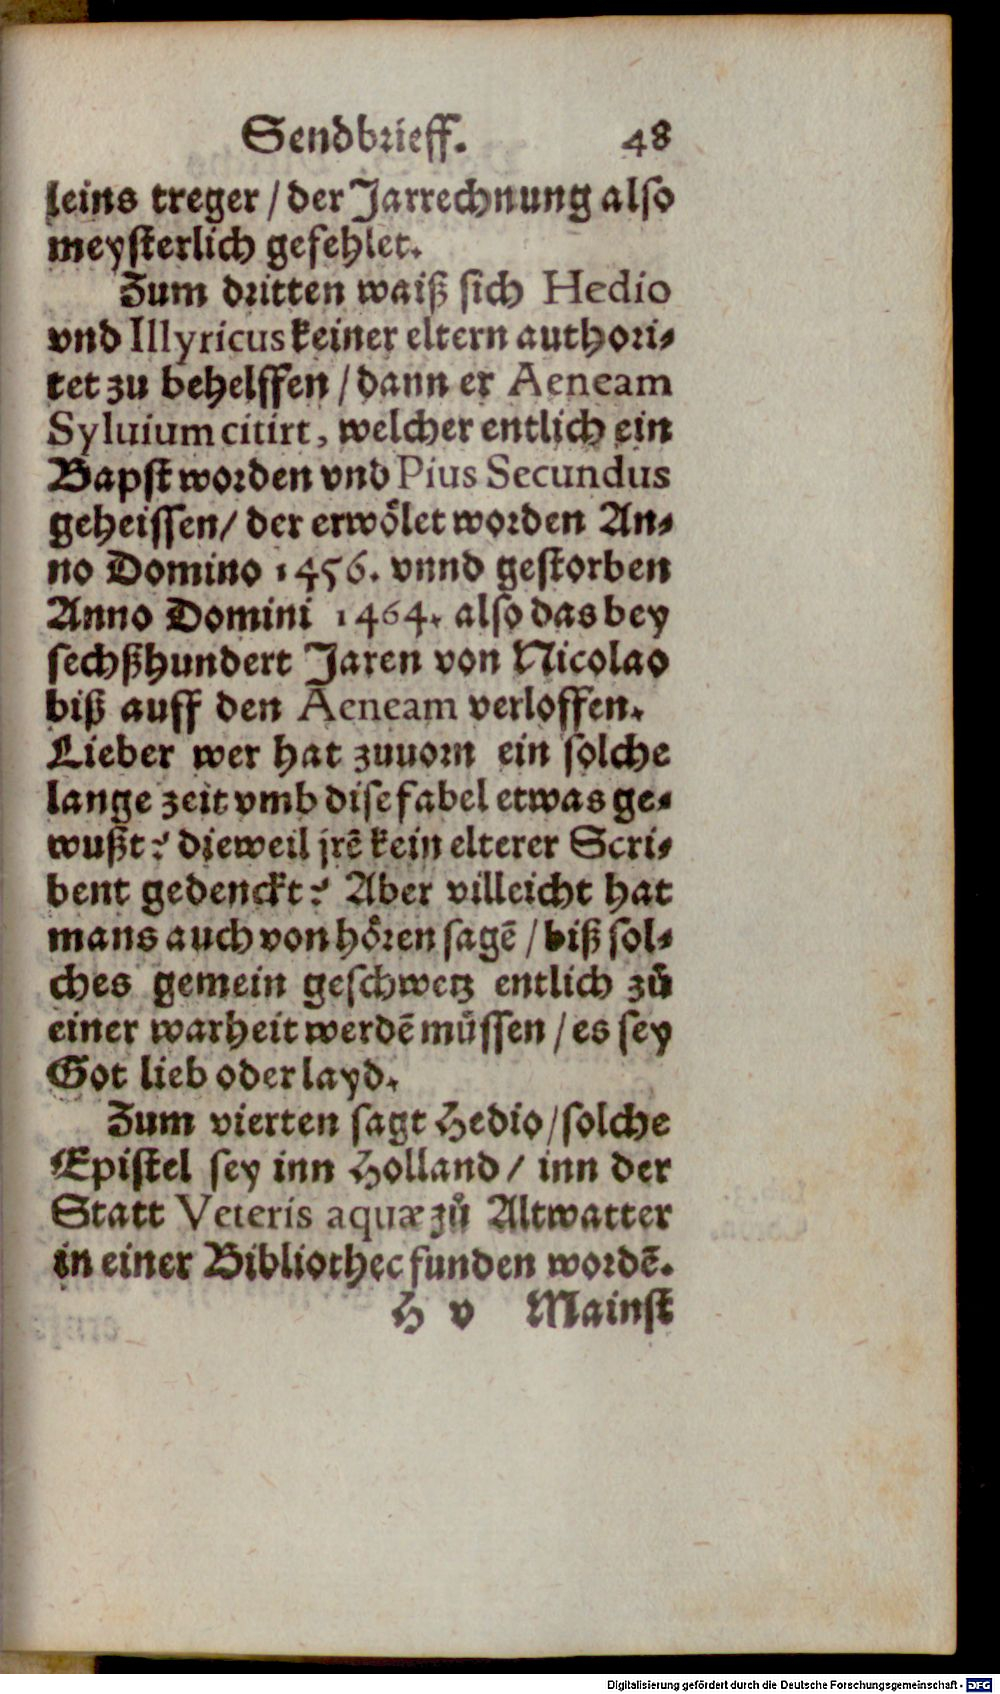 Sendbrieff. 48
leins treger / der Jarrechnung also
meysterlich gefehlet.
Zum dritten waiß sich Hedio
vnd Illyricus keiner eltern authori-
tet zu behelffen / dann er Aeneam
Syluium citirt, welcher entlich ein
Bapst worden vnd Pius Secundus
geheissen / der erwoͤlet worden An-
no Domino 1456. vnnd gestorben
Anno Domini 1464. also das bey
sechßhundert Jaren von Nicolao
biß auff den Aeneam verloffen.
Lieber wer hat zuuorn ein solche
lange zeit vmb dise fabel etwas ge-
wußt? dieweil jrē kein elterer Scri-
bent gedenckt? Aber villeicht hat
mans auch von hoͤren sagē / biß sol-
ches gemein geschwetz entlich zuͦ
einer warheit werdē muͤssen / es sey
Got lieb oder layd.
Zum vierten sagt Hedio / solche
Epistel sey inn Holland / inn der
Statt Veteris aquæ zuͦ Altwatter
in einer Bibliothec funden wordē.
H v Mainst
Digitalisierung gefördert durch die Deutsche Forschungsgemeinschaft - DFG